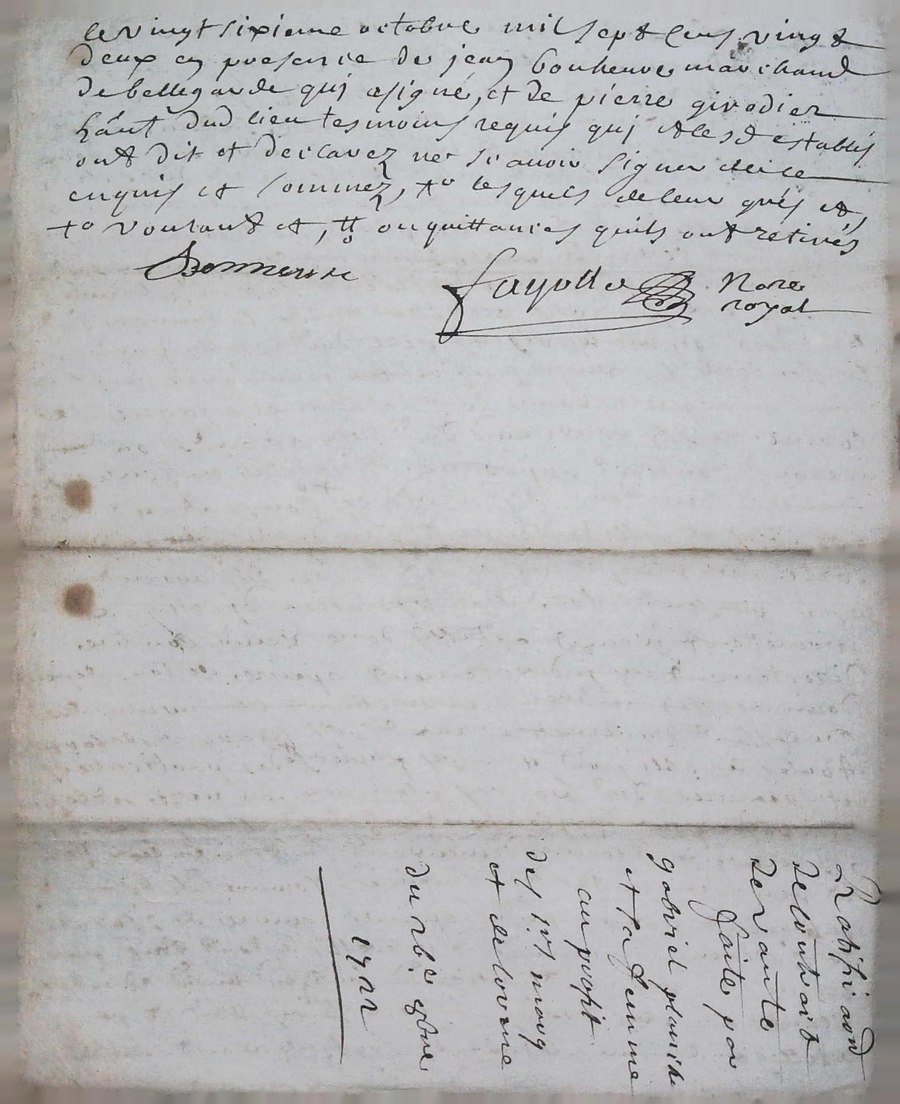 le vingt sixieme octobre mil sept cens vingt
deux en presence de jean bonheure marchand
de bellegarde qui a signé, et de pierre girodier
hãnt dud lieu tesmoins requis qui et lesd establis
ont dit et declarez ne scavoir signer de ce
enquis et sommez, lesquels de leur grés et,
voulant et, ou quittances quils ont retirés
Bonneure
fayolle Nore
royal
Ratifi aõn
de contrait
de vante
faite par
gabriel
et sa femme
au proffit
des
et de
du 26e 8bre
1722